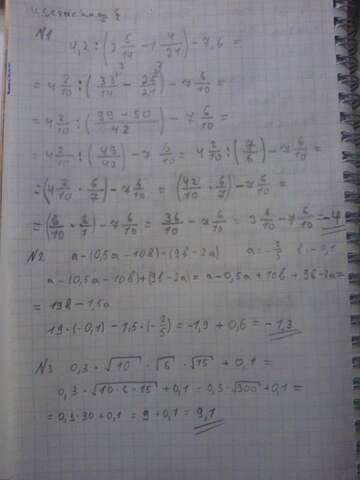 N1
4,2 : (2 5/14 - 1 4/21) - 7,6 =
= 4 2/10 : (33/14 - 25/21) - 7 6/10 =
= 4 2/10 : (99 - 50/42) - 7 6/10 =
= 4 2/10 : (49/42) - 7 6/10 = 4 2/10 : (7/6) - 7 6/10 =
= (4 2/10 · 6/7) - 7 6/10 = (42/10 · 6/7) - 7 6/10 =
= (6/10 · 6/1) - 7 6/10 = 36/10 - 7 6/10 = 3 6/10 - 7 6/10 = -4
N2 a - (0,5a - 10b) + (9b - 2a) a = -2/5 b = -0,1
a - (0,5a - 10b) + (9b - 2a) = a - 0,5a + 10b + 9b - 2a =
= 19b - 1,5a
19 · (-0,1) - 1,5 · (-2/5) = -1,9 + 0,6 = -1,3
N3 0,3 · √10 · √6 · √15 + 0,1 =
0,3 · √10·6·15 + 0,1 = 0,3 · √900 + 0,1 =
= 0,3 · 30 + 0,1 = 9 + 0,1 = 9,1